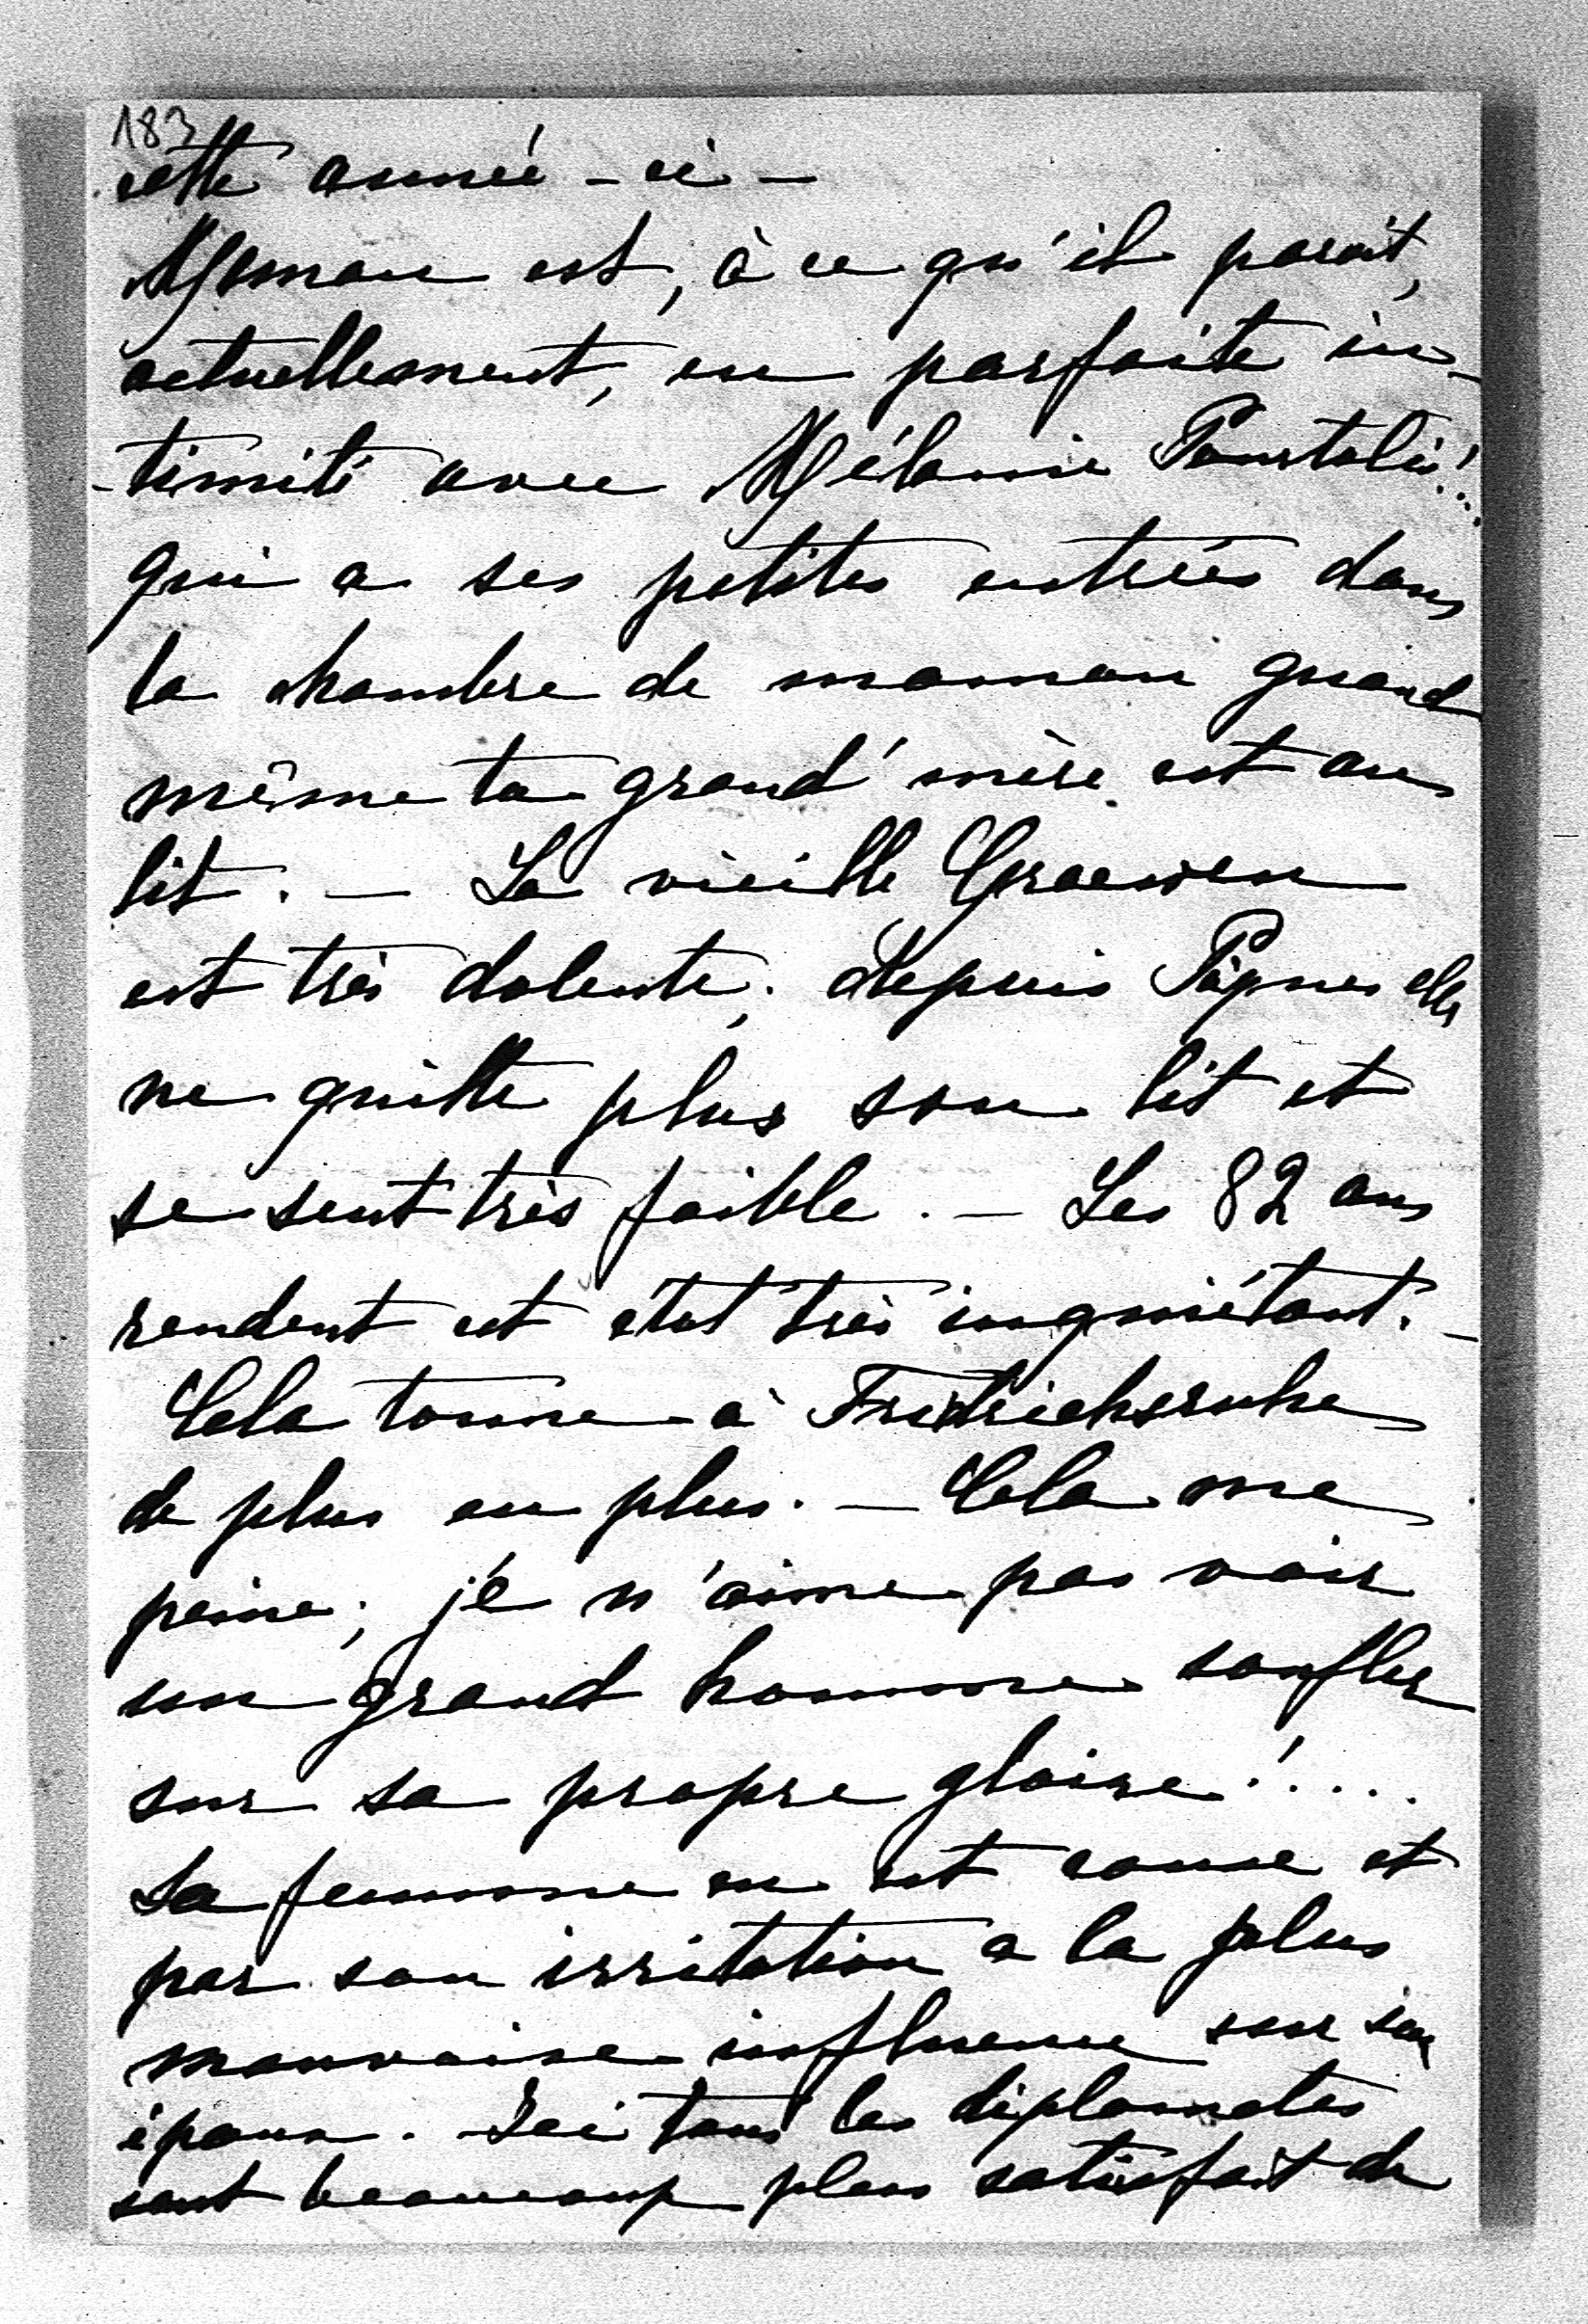 183
cette année-ci —
Maman est, à ce qu'il parait,
actuellement, en parfaite in-
-timité avec Mélanie Pourtalès!...
qui a ses petites entrées dans
la chambre de maman quand
même ta grand'mère est au
lit. — La vieille Graeven
est très dolente; depuis Pâques elle
ne quitte plus son lit et
se sent très faible. — Les 82 ans
rendent cet état très inquiétant. —
Cela tonne à Fridrichsruhe
de plus en plus. — Cela me
peine; je n'aime pas voir
un grand homme souffler
sur sa propre gloire!....
Sa femme en est cause et
par son irritation a la plus
mauvaise influence sur son
époux. Ici tous les diplomates
sont beaucoup plus satisfait de